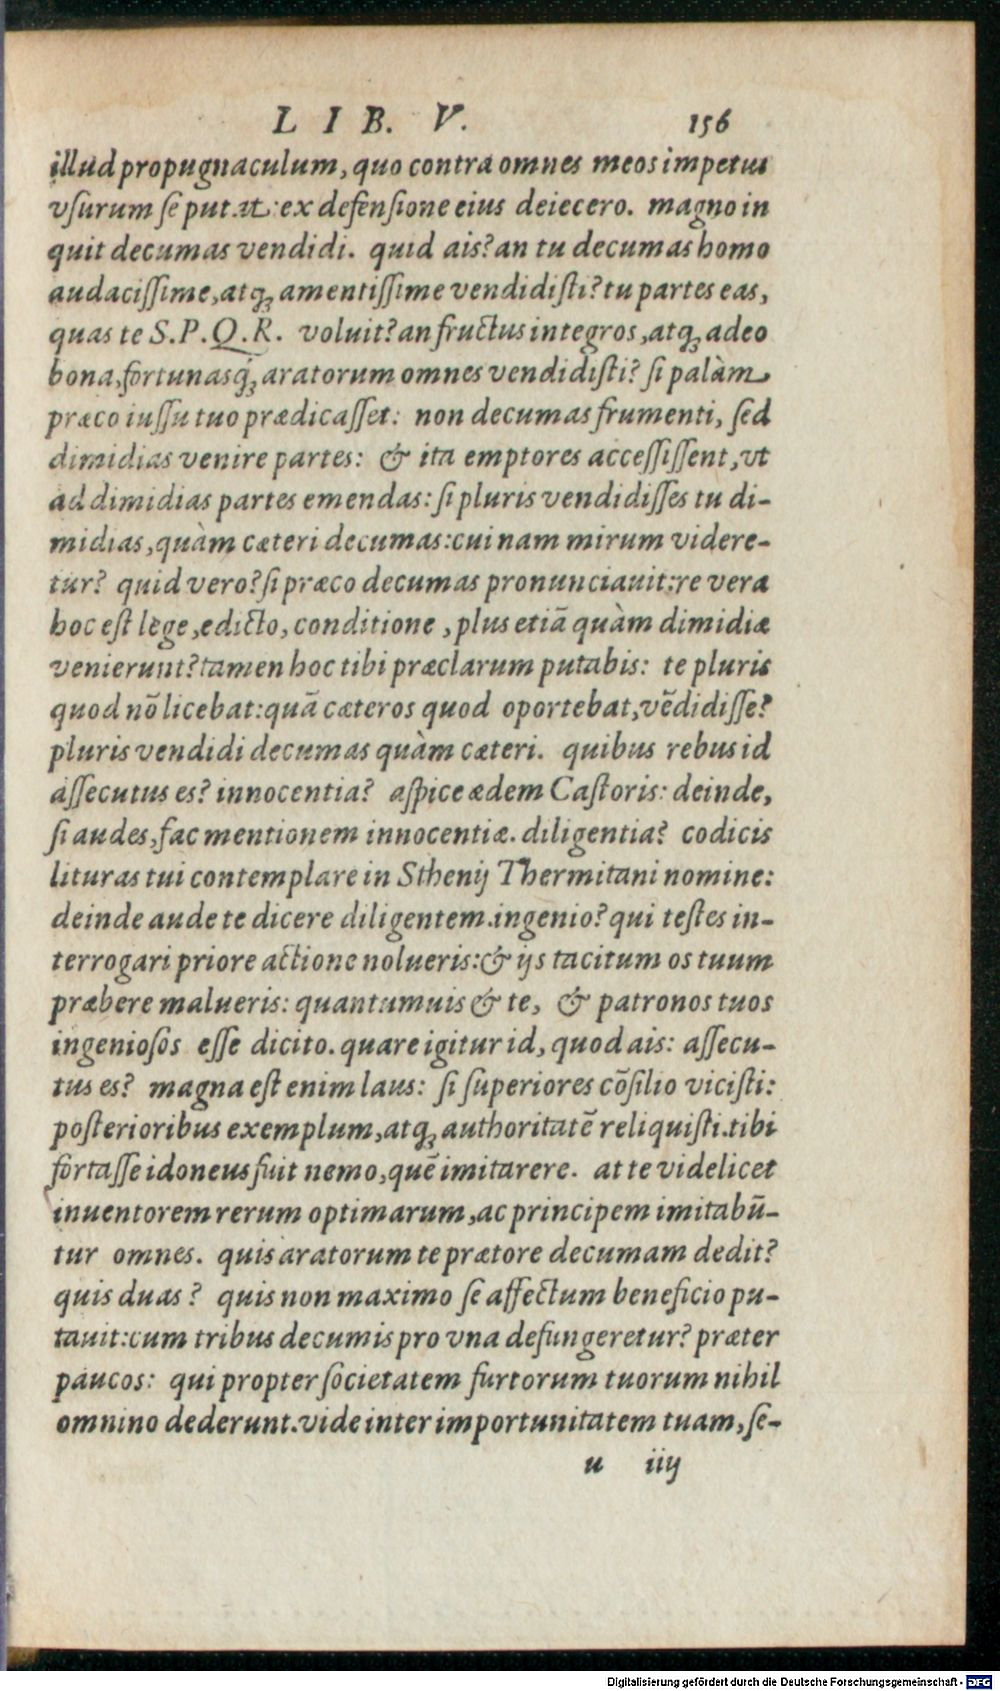 LIB. V. 156
illud propugnaculum, quo contra omnes meos impetus
vſurum ſe putat: ex defenſione eius deiecero. magno in
quit decumas vendidi. quid ais? an tu decumas homo
audaciſſime, atq; amentiſſime vendidiſti? tu partes eas,
quas te S.P.Q.R. voluit? an fructus integros, atq; adeo
bona, fortunasq́; aratorum omnes vendidiſti? ſi palàm
præco iuſſu tuo prædicaſſet: non decumas frumenti, ſed
dimidias venire partes: & ita emptores acceſſiſſent, vt
ad dimidias partes emendas: ſi pluris vendidiſſes tu di-
midias, quàm cæteri decumas: cui nam mirum videre-
tur? quid vero? ſi præco decumas pronunciauit: re vera
hoc eſt lege, edicto, conditione, plus etiã quàm dimidiæ
venierunt? tamen hoc tibi præclarum putabis: te pluris
quod nõ licebat: quã cæteros quod oportebat, vẽdidiſſe?
pluris vendidi decumas quàm cæteri. quibus rebus id
aſſecutus es? innocentia? aſpice ædem Caſtoris: deinde,
ſi audes, fac mentionem innocentiæ. diligentia? codicis
lituras tui contemplare in Sthenij Thermitani nomine:
deinde aude te dicere diligentem. ingenio? qui teſtes in-
terrogari priore actione nolueris: & ijs tacitum os tuum
præbere malueris: quantumuis & te, & patronos tuos
ingenioſos eſſe dicito. quare igitur id, quod ais: aſſecu-
tus es? magna eſt enim laus: ſi ſuperiores cõſilio viciſti:
poſterioribus exemplum, atq; authoritatẽ reliquiſti. tibi
fortaſſe idoneus fuit nemo, quẽ imitarere. at te videlicet
inuentorem rerum optimarum, ac principem imitabũ-
tur omnes. quis aratorum te prætore decumam dedit?
quis duas? quis non maximo ſe affectum beneficio pu-
tauit: cum tribus decumis pro vna defungeretur? præter
paucos: qui propter ſocietatem furtorum tuorum nihil
omnino dederunt. vide inter importunitatem tuam, ſe-
u iiij
Digitalisierung gefördert durch die Deutsche Forschungsgemeinschaft - DFG